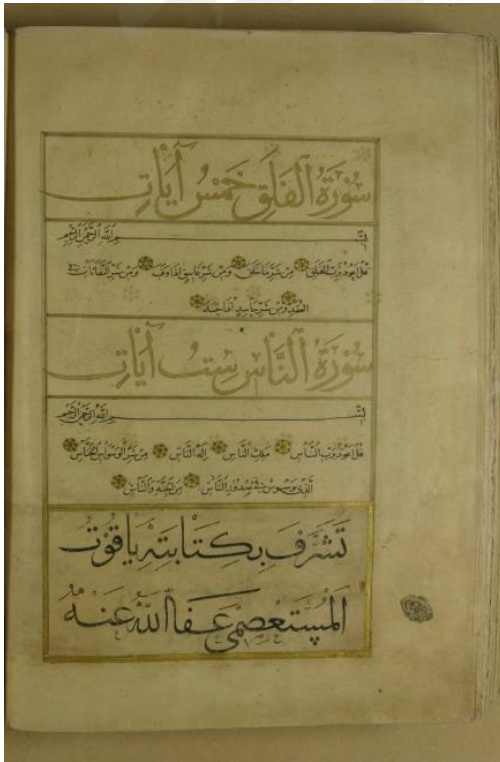 سُورَةُ الْفَلَقِ خَمْسُ آيَاتٍ
بِسْمِ اللَّهِ الرَّحْمَنِ الرَّحِيمِ
قُلْ أَعُوذُ بِرَبِّ الْفَلَقِ مِنْ شَرِّ مَا خَلَقَ وَمِنْ شَرِّ غَاسِقٍ إِذَا وَقَبَ وَمِنْ شَرِّ النَّفَّاثَاتِ فِي
الْعُقَدِ وَمِنْ شَرِّ حَاسِدٍ إِذَا حَسَدَ
سُورَةُ النَّاسِ سِتُّ آيَاتٍ
بِسْمِ اللَّهِ الرَّحْمَنِ الرَّحِيمِ
قُلْ أَعُوذُ بِرَبِّ النَّاسِ مَلِكِ النَّاسِ إِلَهِ النَّاسِ مِنْ شَرِّ الْوَسْوَاسِ الْخَنَّاسِ
الَّذِي يُوَسْوِسُ فِي صُدُورِ النَّاسِ مِنَ الْجِنَّةِ وَالنَّاسِ
تَشَرَّفَ بِكِتَابَتِهِ يَاقُوتُ
الْمُسْتَعْصِمِي عَفَا اللَّهُ عَنْهُ